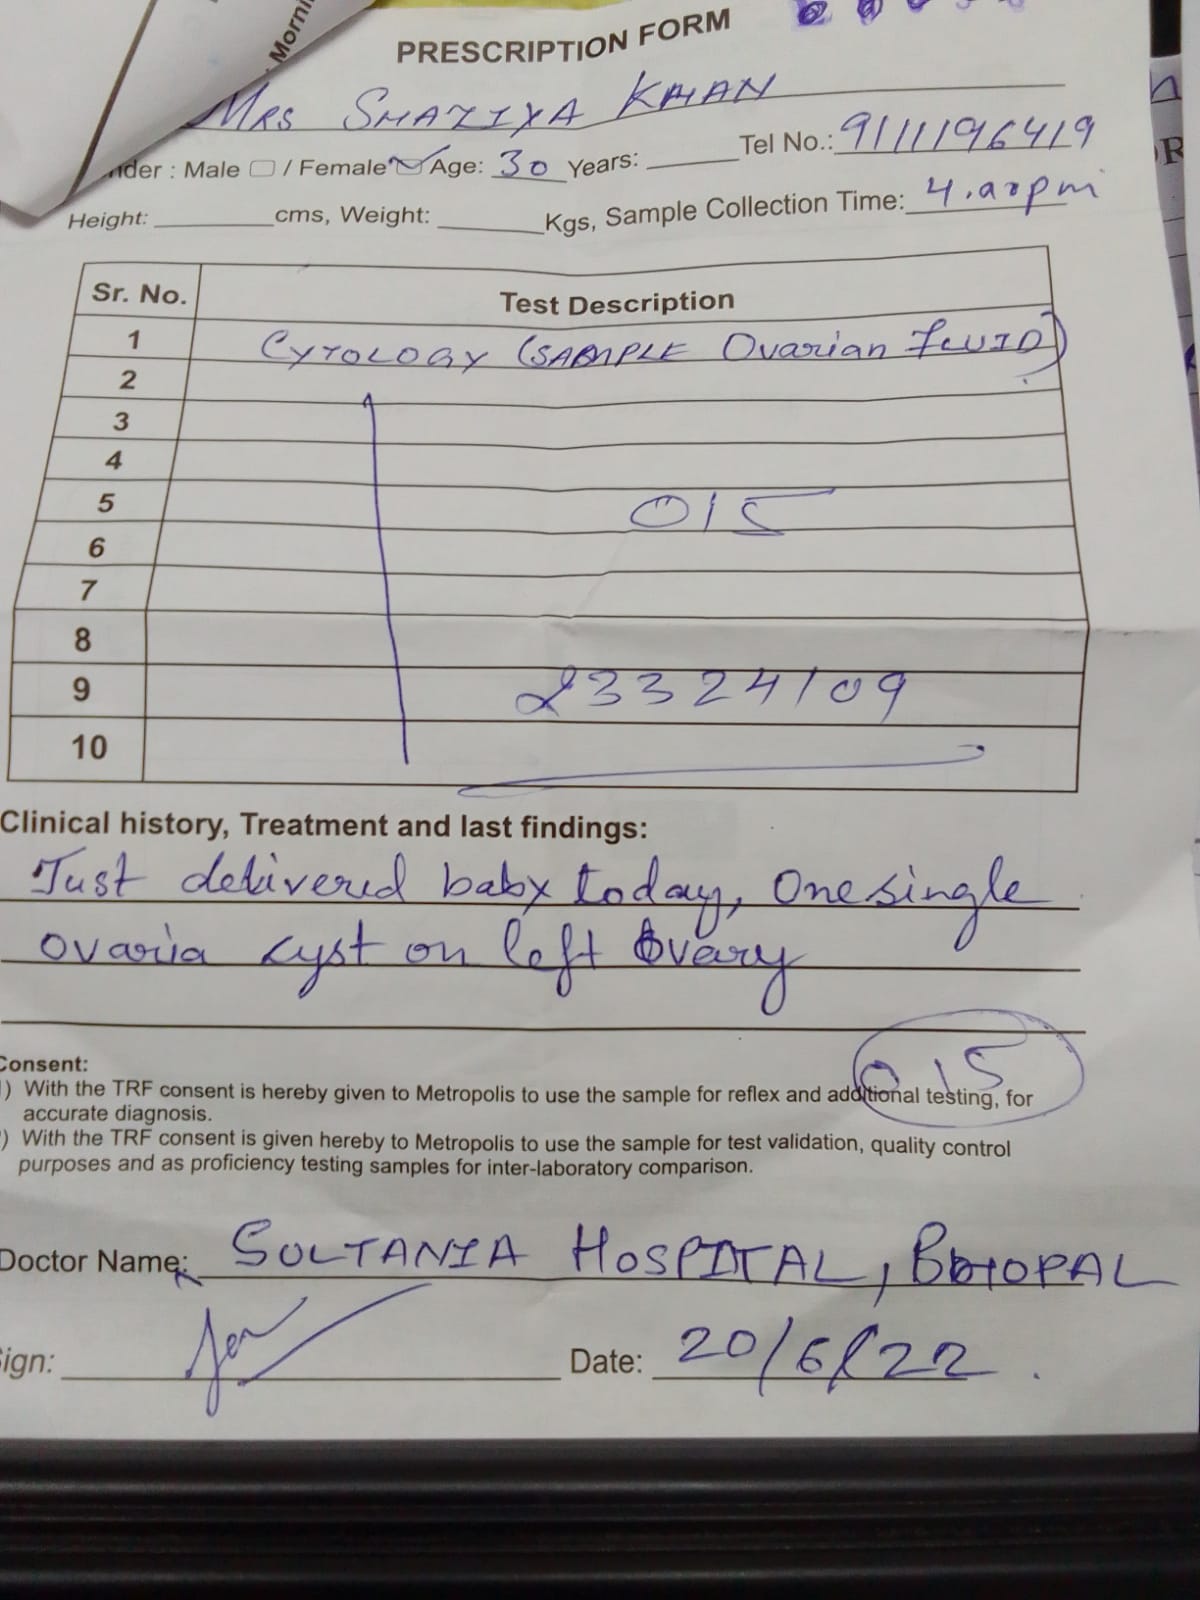 Morni
PRESCRIPTION FORM
MRS SHAZIYA KHAN
nder : Male / Female Age: 30 Years: Tel No.: 9111196419
Height: cms, Weight: Kgs, Sample Collection Time: pm
Sr. No. Test Description
1 CYTOLOGY (SAMPLE Ovarian FLUID)
2
3
4
5 015
6
7
8
9 23324109
10
Clinical history, Treatment and last findings:
Just delivered baby today, One single
ovaria cyst on left Ovary
015
Consent:
) With the TRF consent is hereby given to Metropolis to use the sample for reflex and additional testing, for
accurate diagnosis.
) With the TRF consent is given hereby to Metropolis to use the sample for test validation, quality control
purposes and as proficiency testing samples for inter-laboratory comparison.
Doctor Name: SULTANIA HOSPITAL, BHOPAL
Sign: Date: 20/6/22.